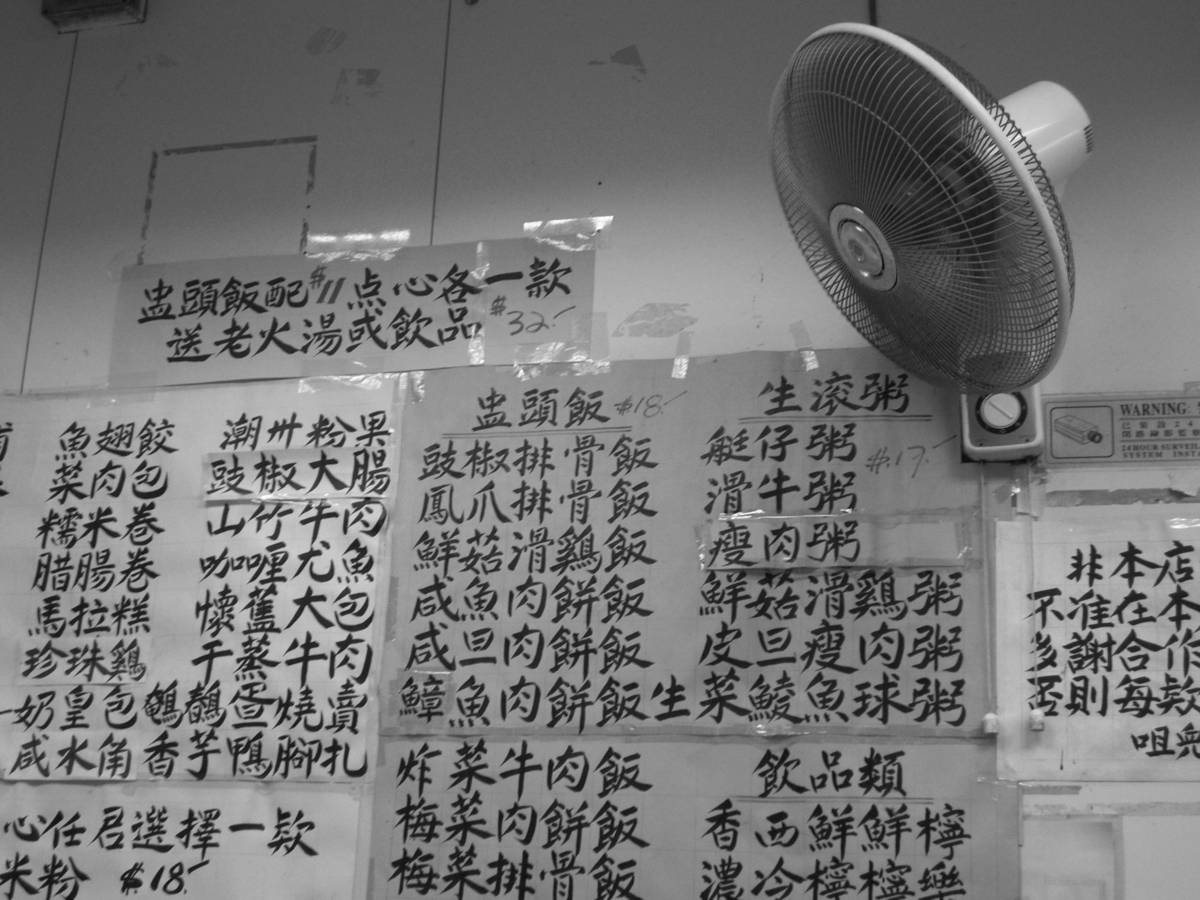 盅頭飯配$11点心各一款
送老火湯或飲品 $32.-
魚翅餃
菜肉包
糯米卷
腊腸卷
馬拉糕
珍珠鷄
奶皇包
咸水角
潮州粉果
豉椒大腸
山竹牛肉
咖喱尤魚
懷舊大包
干蒸牛肉
鵪鶉蛋燒賣
香芋鴨腳扎
心任君選擇一款
米粉 $18.-
盅頭飯 $18.-
豉椒排骨飯
鳳爪排骨飯
鮮菇滑鷄飯
咸魚肉餅飯
咸旦肉餅飯
鱆魚肉餅飯
炸菜牛肉飯
梅菜肉餅飯
梅菜排骨飯
生滚粥
艇仔粥 $17.-
滑牛粥
瘦肉粥
鮮菇滑鷄粥
皮旦瘦肉粥
生菜鯪魚球粥
飲品類
香西鮮鮮檸
濃冷檸檸樂
WARNING
已安設24
閉路錄影監
24HOUR
SYSTEM INSTA
非本店
不准在本
多謝合作
否則每欵
咀